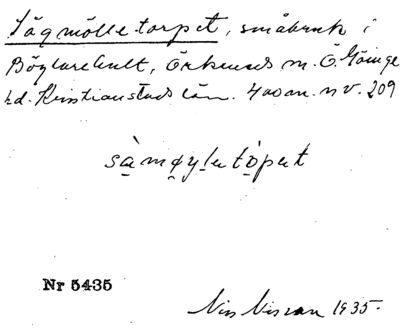 Sågmölletorpet, småbruk i
Böglarehult, Örkeneds sn. Ö Göinge
hd. Kristianstads län. 400 m. n V. 209
sàmøyletòpet
Nr 5435
Nils Nilsson 1935.